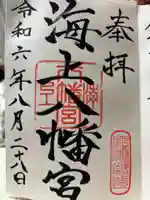 奉拝
海上八幡宮
令和六年八月二十八日